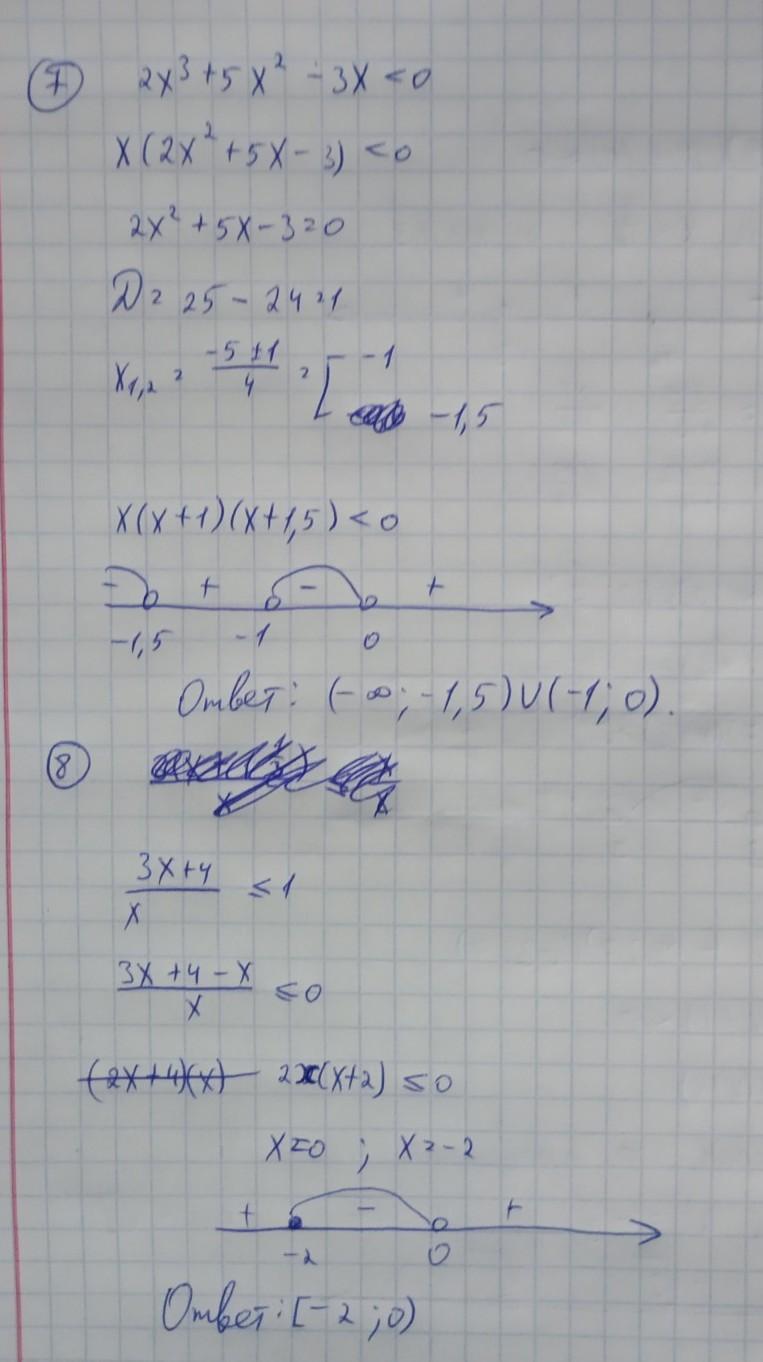 7 2x³ + 5x² - 3x < 0
x(2x² + 5x - 3) < 0
2x² + 5x - 3 = 0
D = 25 - 24 = 1
x₁,₂ = (-5 ± 1)/4 = [ -1
-1,5
x(x+1)(x+1,5) < 0
- + - +
-1,5 -1 0
Ответ: (-∞; -1,5) ∪ (-1; 0).
8
(3x+4)/x ≤ 1
(3x + 4 - x)/x ≤ 0
(2x+4)(x) 2x(x+2) ≤ 0
x = 0 ; x = -2
+ - +
-2 0
Ответ: [-2 ; 0)